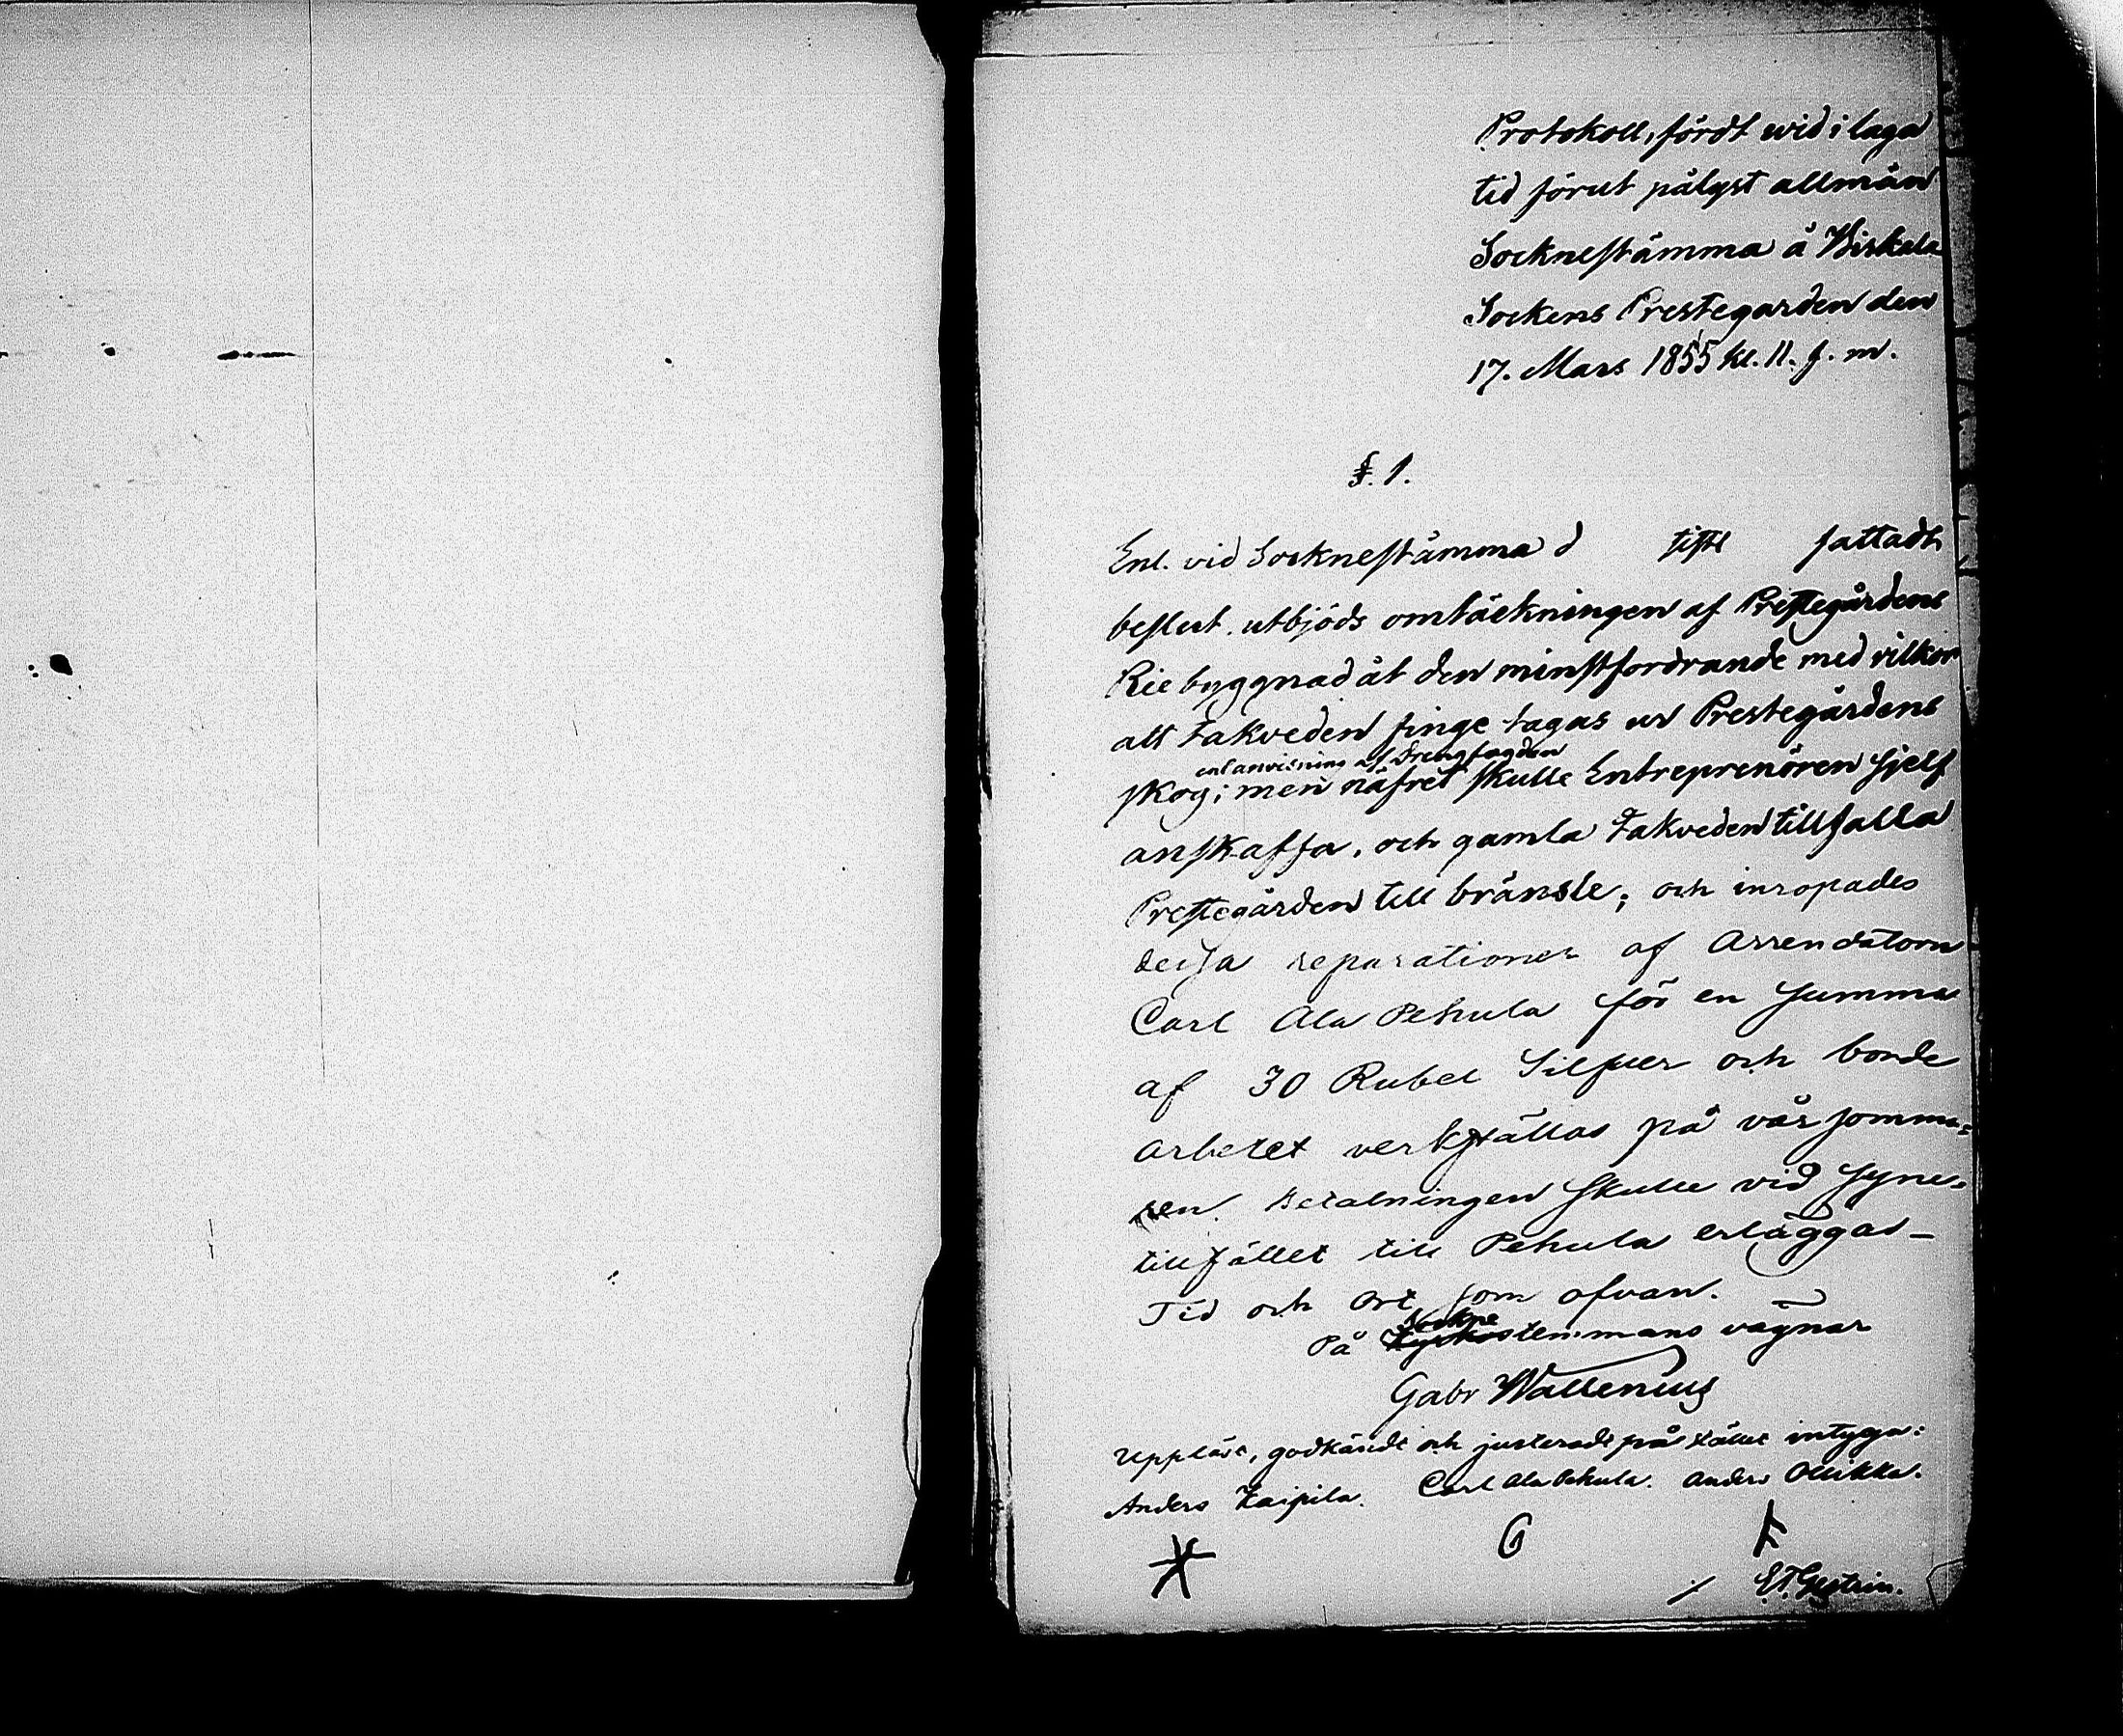 Protokoll, fördt wid i laga
tid förut pålyst allmän
Socknestämma å Wirkala
Sockens Prestegarden den
17. Mars 1855 kl. 11. f. m.
§. 1.
Enl. vid Socknestämma d sistl fattadt
beslut utbjöds omtäckningen af Prestegårdens
Rie byggnad åt den minstfordrande med vilkor
att takveden finge tagas ur Prestegårdens
enl anvisning af
skog; men näfret skulle Entreprenören sjelf
anskaffa, och gamla takveden tillfalla
Prestegården till bränsle; och inropades
dessa reparationer af Arrendatorn
Carl Ala Pehula för en summa
af 30 Rubel Silfver och borde
arbetet verkställas på vårsomma=
ren. Betalningen skulle vid syne=
tillfället till Pehula erläggas_
Tid och ort som ofvan.
Sockne
På Kyrkostemmans vägnar
Gabr Wallenius
Uppläst, godkändt och justeradt på stället intyga:
Anders Kaipila. Carl Ala Pehula. Anders Ollikka.